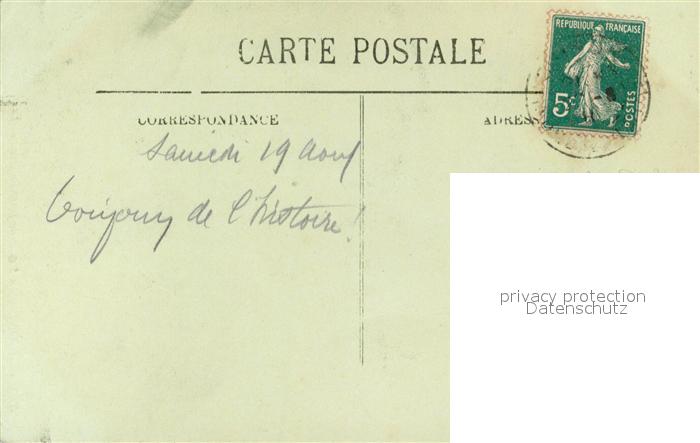 CARTE POSTALE
REPUBLIQUE FRANÇAISE
5c
POSTES
CORRESPONDANCE
ADRESS
Samedi 19 Aout
Toujours de l'histoire!
privacy protection
Datenschutz